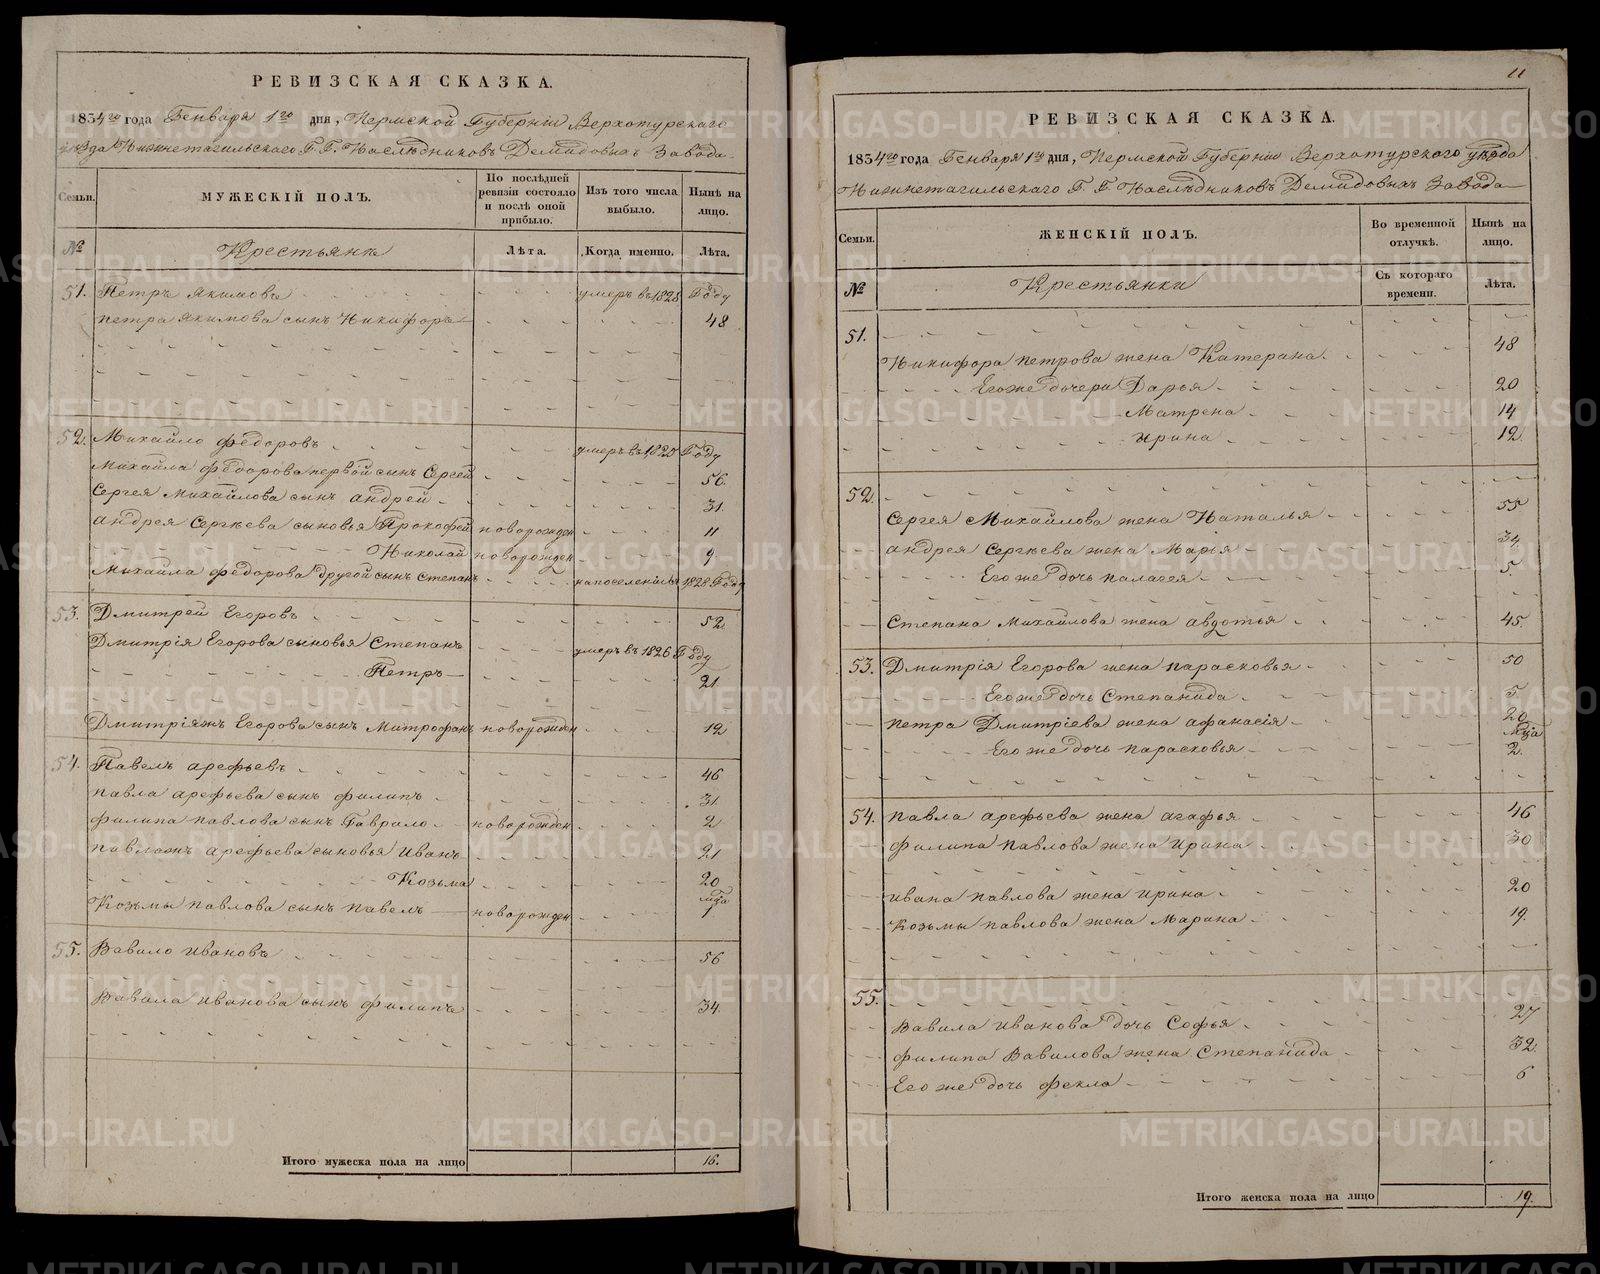 РЕВИЗСКАЯ СКАЗКА.
1834го года Генваря 1го дня, Пермской Губерніи Верхотурскаго
уѣзда Нижнетагильскаго Г. Г. Наслѣдниковъ Демидовыхъ Завода
Семьи.
МУЖЕСКІЙ ПОЛЪ.
По послѣдней ревизіи состояло и послѣ оной прибыло.
Изъ того числа выбыло.
Нынѣ на лицо.
№
Крестьянъ
Лѣта.
Когда именно.
Лѣта.
51. Петръ Якимовъ умеръ въ 1828 Году
Петра Якимова сынъ Никифоръ 48
52. Михайло Федоровъ умеръ въ Году
Михайла Федорова первой сынъ Сергей 56
Сергея Михайлова сынъ Андрей 31
Андрея Сергѣева сыновья Прокофей новорожден 11
Николай новорожден 9
Михайла Федорова другой сынъ Степанъ 1828 Году
53. Дмитрей Егоровъ 52
Дмитрія Егорова сыновья Степанъ умеръ въ 1826 Году
Петръ 21
Дмитрія жъ Егорова сынъ Митрофанъ новорожден 12
54. Павелъ Арефьевъ 46
Павла Арефьева сынъ Филипъ 31
Филипа Павлова сынъ Гаврило новорожден 2
Павла жъ Арефьева сыновья Иванъ 21
Козьма 20
Козьмы Павлова сынъ Павелъ новорожден мца 1
55. Вавило Ивановъ 56
Вавила Иванова сынъ Филипъ 34
Итого мужеска пола на лицо 16.
11
РЕВИЗСКАЯ СКАЗКА.
1834го года Генваря 1го дня, Пермской Губерніи Верхотурскаго уѣзда
Нижнетагильскаго Г. Г. Наслѣдниковъ Демидовыхъ Завода
Семьи.
ЖЕНСКІЙ ПОЛЪ.
Во временной отлучкѣ.
Нынѣ на лицо.
№
Крестьянки
Съ котораго времени.
Лѣта.
51.
Никифора Петрова жена Катерина 48
Его же дочери Дарья 20
Матрена 14
Ирина 12
52.
Сергея Михайлова жена Наталья 55
Андрея Сергѣева жена Марья 34
Его же дочь Палагея 5
Степана Михайлова жена Авдотья 45
53. Дмитрія Егорова жена Парасковья 50
Его же дочь Степанида 5
Петра Дмитріева жена Афанасія 20
Его же дочь Парасковья мца 2
54. Павла Арефьева жена Агафья 46
Филипа Павлова жена Ирина 30
Ивана Павлова жена Ирина 20
Козьмы Павлова жена Марина 19
55.
Вавила Иванова дочь Софья 27
Филипа Вавилова жена Степанида 32
Его же дочь Фекла 6
Итого женска пола на лицо 19.
METRIKI.GASO-URAL.RU